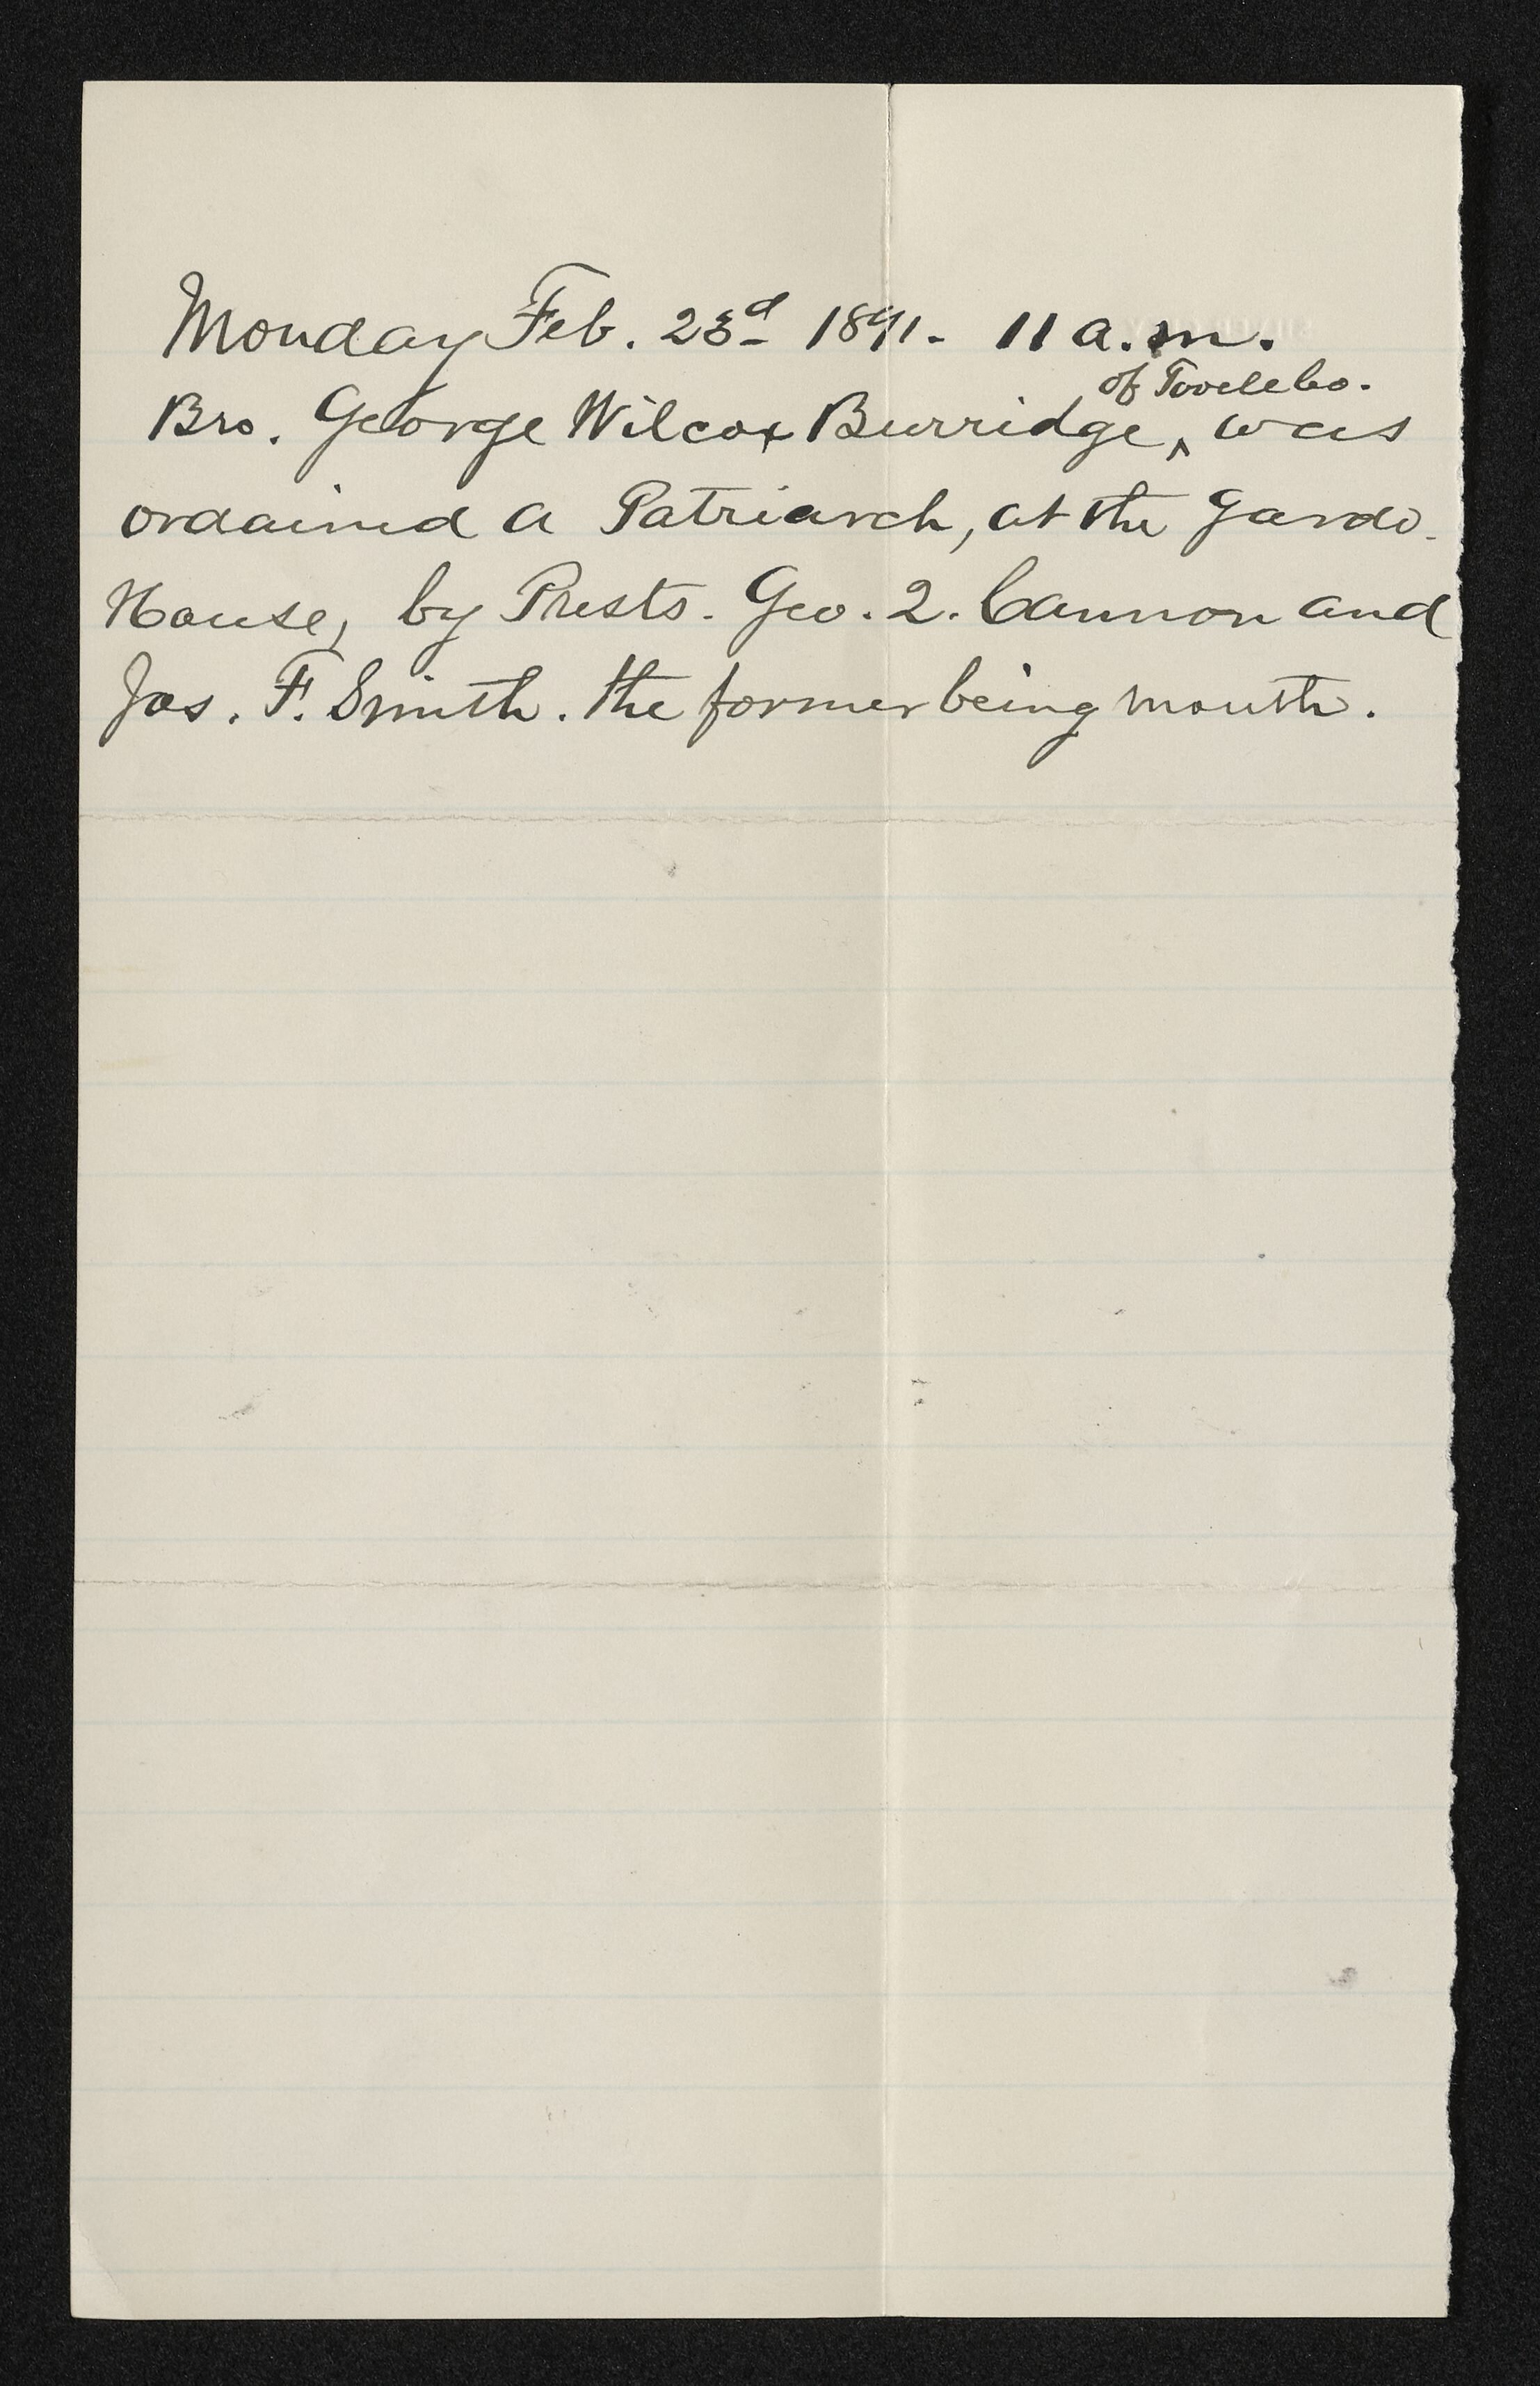 Monday Feb. 23d 1891. 11 a.m.
of Tooele Co.
Bro. George Wilcox Burridge, ^ was
ordained a Patriarch, at the Gardo
House, by Prests. Geo. Q. Cannon and
Jos. F. Smith. the former being mouth.